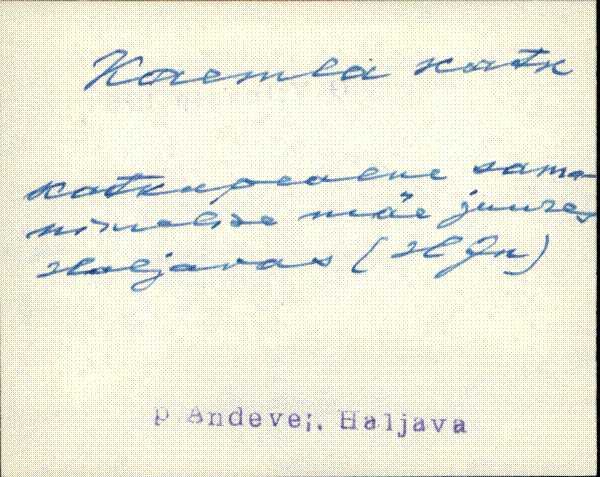 Kaemla katk
katkupealne sama-
nimelise mäe juures
Haljavas (H Jn)
P Andevei, Haljava